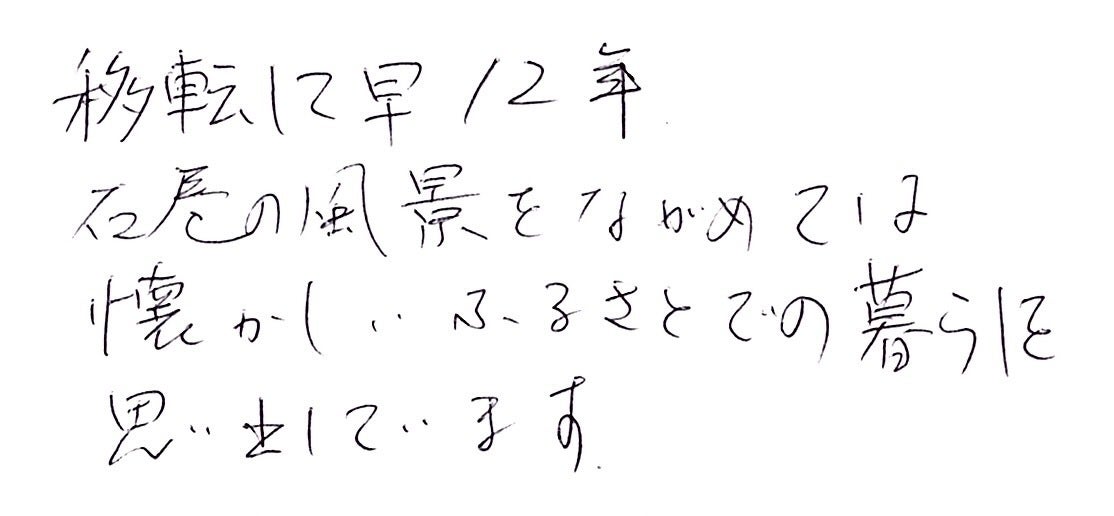 移転して早12年
石巻の風景をながめては
懐かしいふるさとでの暮らしを
思い出しています